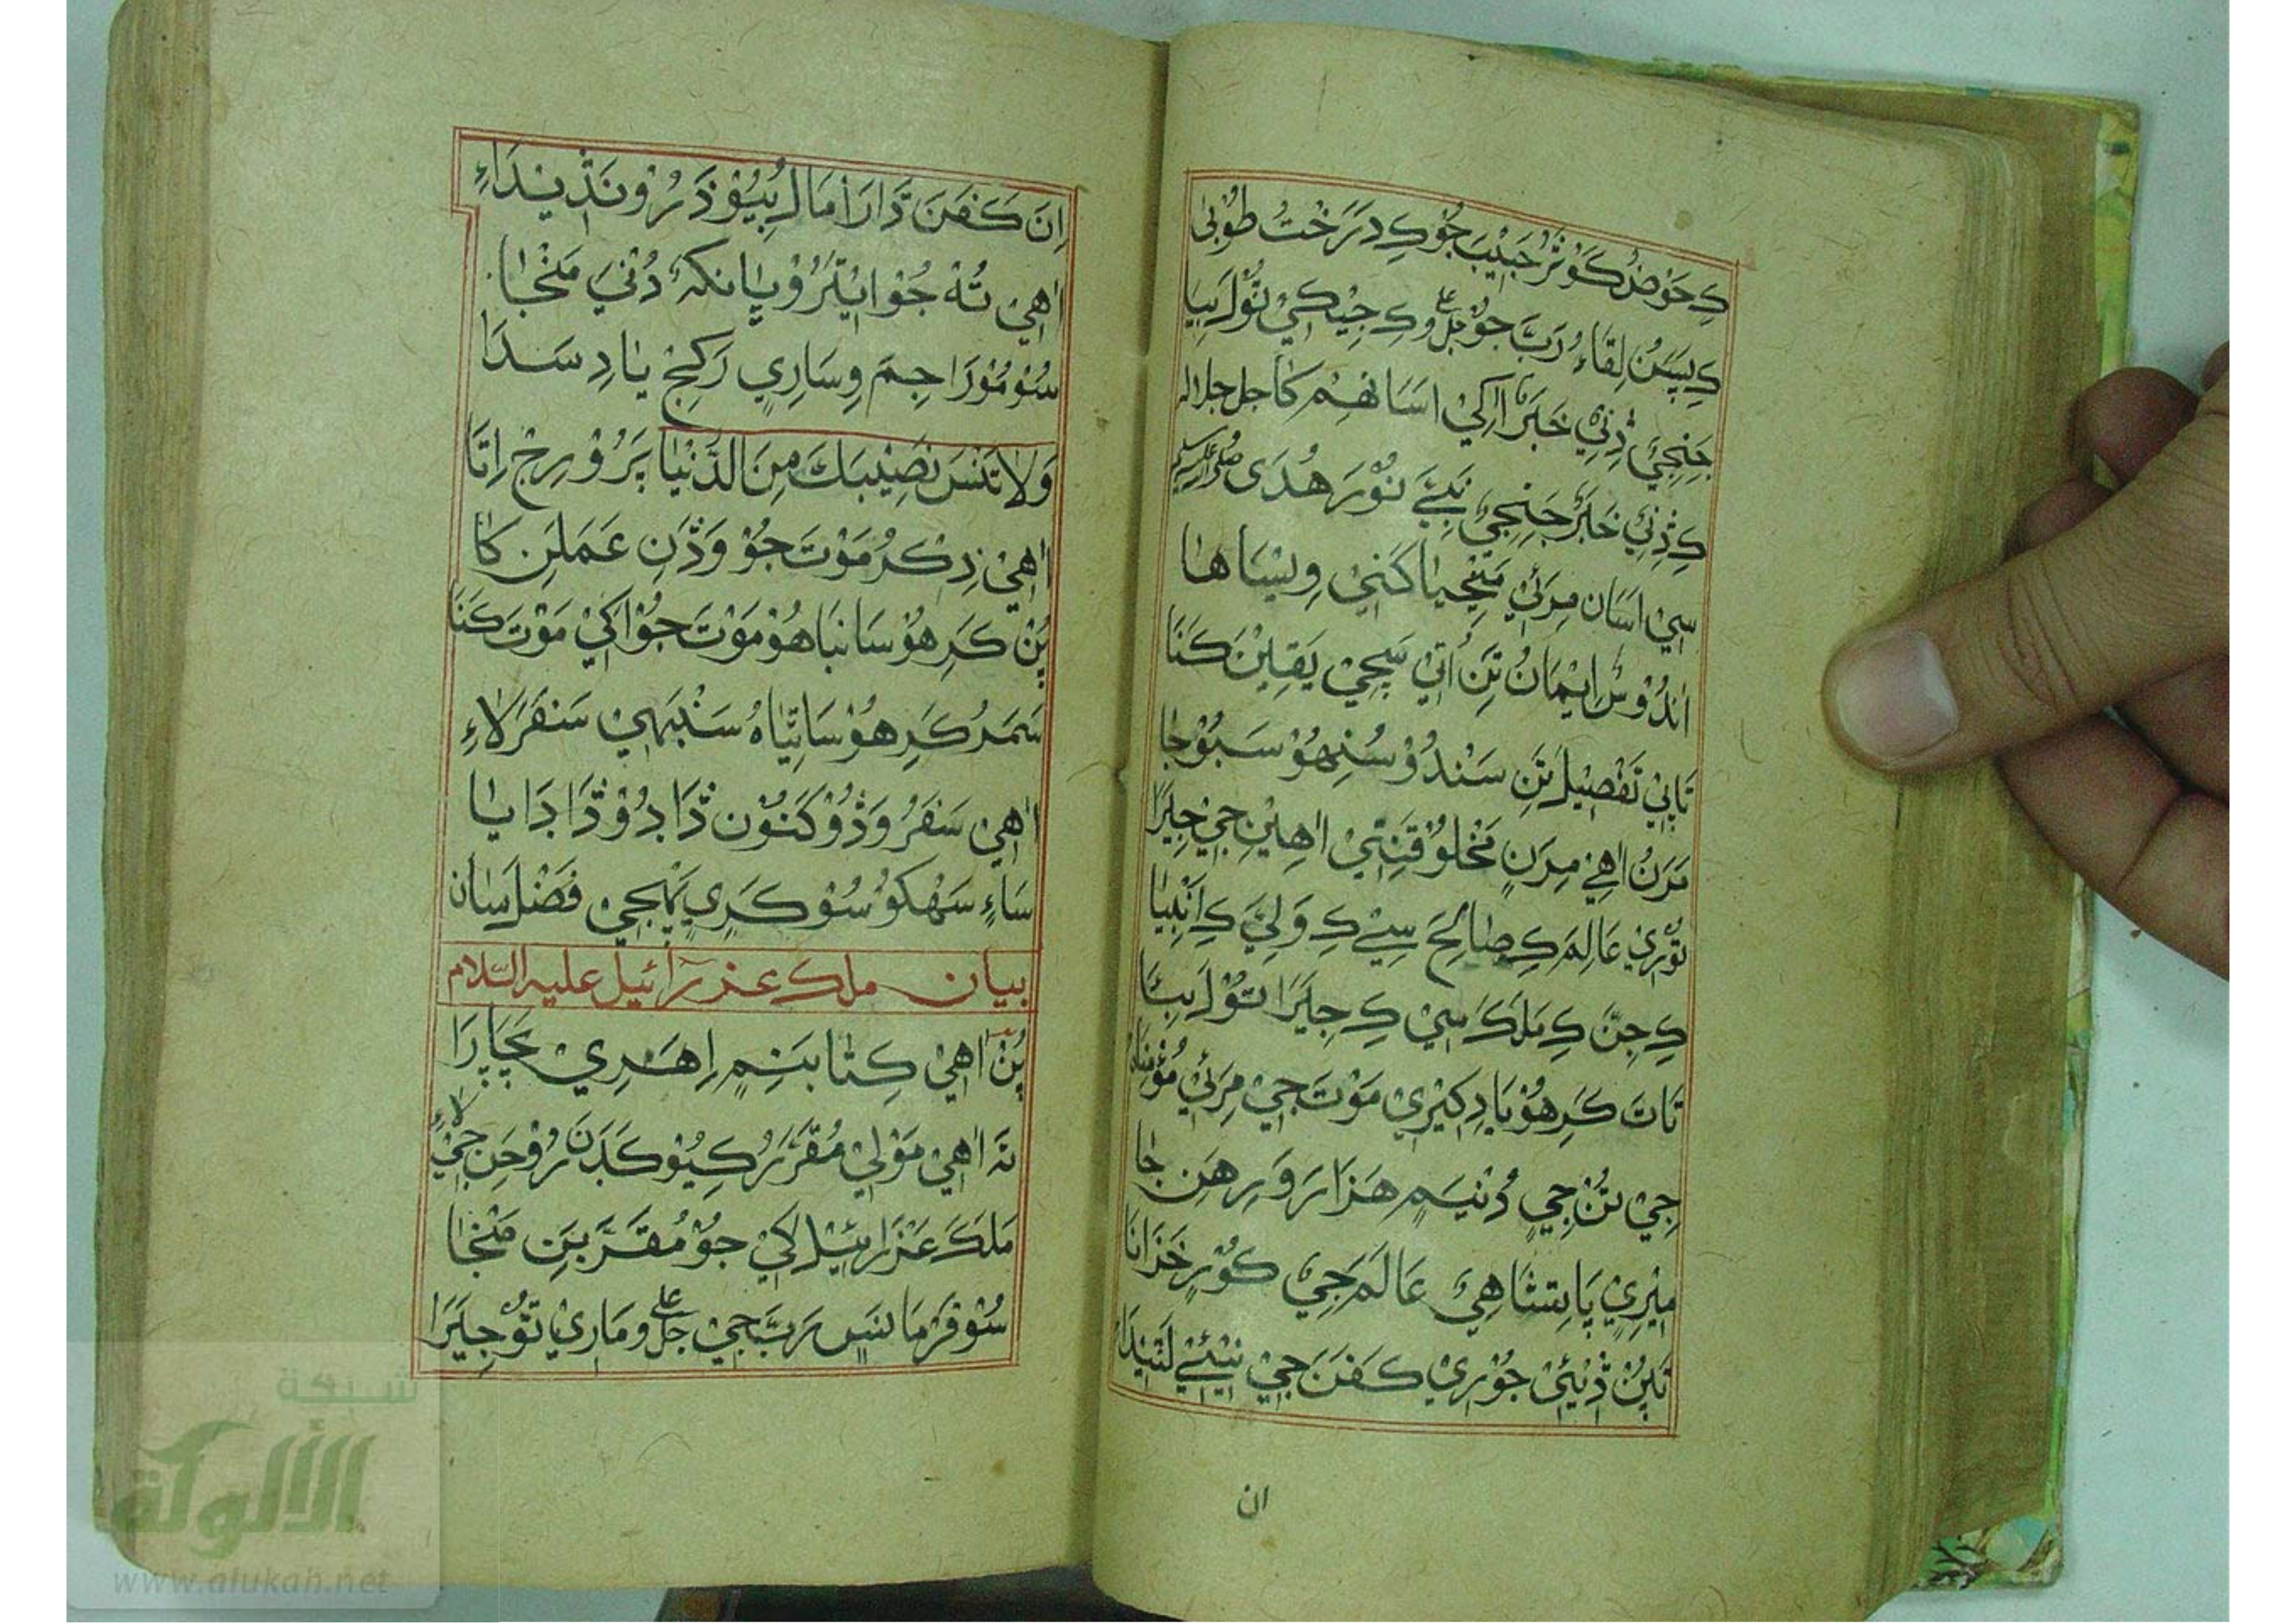 کِ حَوْضُ کَوْثَرُ حَبِيْبَ جُوْ کِ دَرَخْتُ طُوْبٰي
کِ پَسَنُ لِقَاءُ رَبَّ جُوْ جل وعلا کِ جِيْکِيْ تُوْلَ سِيَا
جَنِجِيْ ڎِنِيْ خَبَرَ اَکِيْ اسَانهِمْ کَا جل جلاله
کِ ڎِنِيْ خَبَرَ جَنِجِيْ نَبِيَّ نُوْرَ هُدَى صلى الله عليه وسلم
سٖيْ اسَان مِرَئِيْ مَنِجْيَا کَنِيْ وِيْسَاهَا
اَندُوْسُ اِيْمَانُ تَنِ اُتِيْ سَچِيْ يَقِيْنَ کَنَا
تَاپِيْ تَفْصِيْلَ تَنِ سَنْدُوْ سُنِهُوْ سَبُوْجَا
مَرَنُ اٰهِيْ مِرَنٖ مَخْلُوْقَنِتِيْ اٰهِيْنِ جٖيْ جِيَرَا
تُوْرِيْ عَالِمَ کِ صَالِحَ سٖيْ کِ وَلِيَّ کِ اَنْبِيَا
کِ جِنَّ کِ مَلَکَ سٖيْ کِ جِيَرَا تُوْلَ بِيَا
تَاتَ کَرِهُوْ يَادِکِيْرِيْ مَوْتَ جِيْ مِرَئِيْ مُؤْمِنَان
جِيْ تُنْ جٖيْ دُنْيَمِ هَزَارَ وَرِهَنِ جَا
مِيْرِيْ پَاتِشَاهِيْ عَالَمَ جِيْ کُوْرِ خَزَانَا
تَپُنْ ڎِيْئِيْ جُوْرِيْ کَفَنَ جٖيْ بِيْئِيْ لَتِيْدَا
ان
اِنَ کَفَنَ ڌَارَا مَالُ بِيُوْ ذَرُ رُوْ نَڎِيْنِدَاءِ
اٰهِيْ تُهْ جُوْ اٖيْتَرُوْ پَانکهٗ دُنْيَ مَنْجَا
سُوْ مُوْرَا جِمَ وِسَارِيٖ رَکِجْ يَادِ سَدَا
وَلَا تَنْسَ نَصِيْبَكَ مِنَ الدُّنْيَا پَرُوْرِجْ اِتَا
اٰهِيْ ذِکْرُ مَوْتَ جُوْ وَڎَنِ عَمَلَنِ کَا
پُنْ کَرِهُوْ سَانبَاهُوْ مَوْتَ جُوْ اَکِيْ مَوْتَ کَنَا
سَمَرُ کَرِهُوْ سَاتِيَاهُ سَنْبَهِيْ سَفَرَ لَاءِ
اٰهِيْ سَفَرُ وَڎُوْ کَنُوْن ڎَادُوْ ڎَادَايَا
سَاءِ سَهْکُوْ سُوْ کَرِيٖ پَهْجِيْ فَضْلَ سَان
بيان ملك عزرائيل عليه السّلام
پُنْ اٰهِيْ کِتَابَنِمِ اِهَرِيْ چَپَارَا
تَہ اٰهِيْ مَوْلٰي مُقَرَّرُ کِيُوْ کَڊَنَ رُوْحَنِ جٖيْ لَاءِ
مَلَکَ عَزْرَائِيْلَ کٖيْ جُوْ مُقَرَّبَنِ مَنْجَا
سُوْ فَرْمَانَسٖ رَبَّ جٖيْ جل وعلا مَارِيْ تُوْ جِيَرَا
شبكة
الألوكة
www.alukah.net